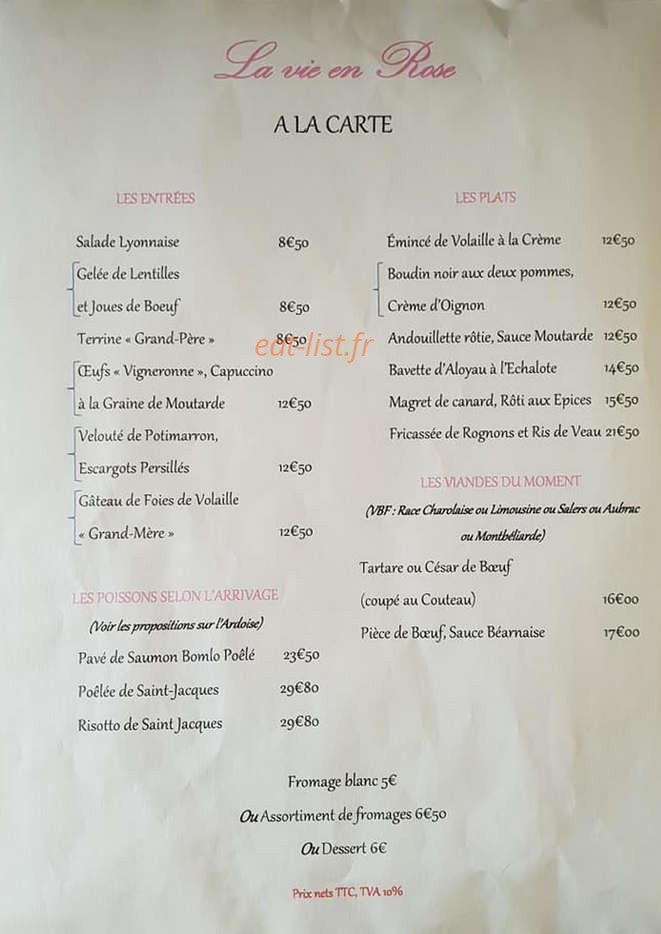 La vie en Rose
A LA CARTE
LES ENTRÉES
Salade Lyonnaise 8€50
Gelée de Lentilles
et Joues de Boeuf 8€50
Terrine « Grand-Père » 8€50
eat-list.fr
Œufs « Vigneronne », Capuccino
à la Graine de Moutarde 12€50
Velouté de Potimarron,
Escargots Persillés 12€50
Gâteau de Foies de Volaille
« Grand-Mère » 12€50
LES POISSONS SELON L'ARRIVAGE
(Voir les propositions sur l'Ardoise)
Pavé de Saumon Bomlo Poêlé 23€50
Poêlée de Saint-Jacques 29€80
Risotto de Saint Jacques 29€80
LES PLATS
Émincé de Volaille à la Crème 12€50
Boudin noir aux deux pommes,
Crème d'Oignon 12€50
Andouillette rôtie, Sauce Moutarde 12€50
Bavette d'Aloyau à l'Echalote 14€50
Magret de canard, Rôti aux Epices 15€50
Fricassée de Rognons et Ris de Veau 21€50
LES VIANDES DU MOMENT
(VBF : Race Charolaise ou Limousine ou Salers ou Aubrac
ou Montbéliarde)
Tartare ou César de Bœuf
(coupé au Couteau) 16€00
Pièce de Bœuf, Sauce Béarnaise 17€00
Fromage blanc 5€
Ou Assortiment de fromages 6€50
Ou Dessert 6€
Prix nets TTC, TVA 10%